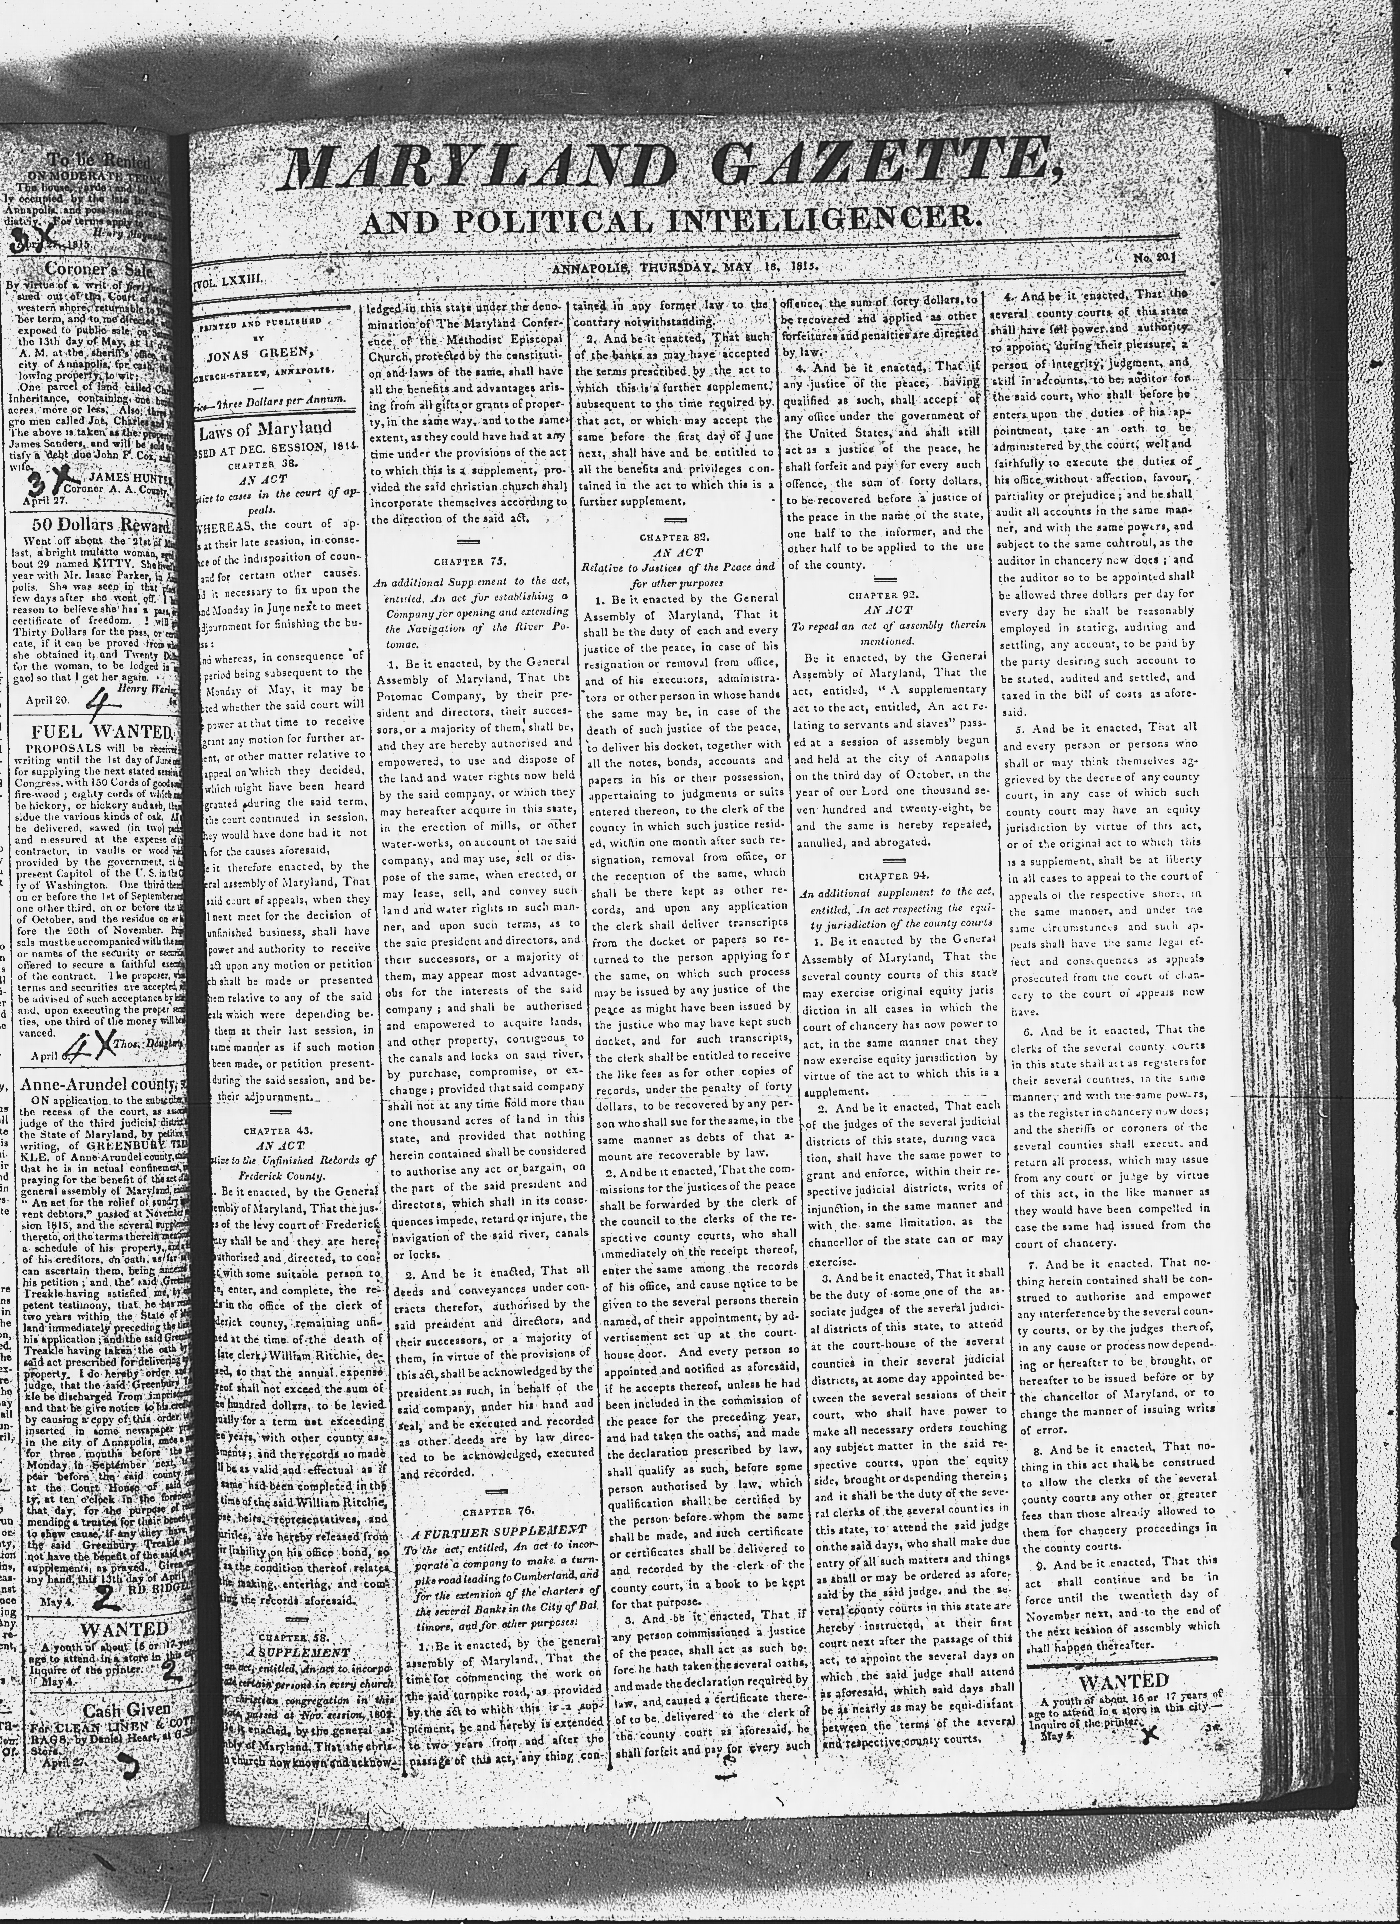 To be Rented
ON MODERATE
Annapolis, and
For terms apply
April 27, 1815.
Coroner's Sale.
By virtue of a writ of
sued out of the Court of
western shore, returnable to
ber term, and to me directed,
exposed to public sale, on
the 13th day of May, at
A. M. at the sheriff's office,
city of Annapolis, for cash,
lowing property, to wit:
One parcel of land called
Inheritance, containing, one
acres, more or less, Also,
gro men called Joe, Charles and
The above is taken as the property
James Sanders, and will be sold
tisfy a debt due John F. Cox, and
wife.
JAMES HUNTER,
Coroner A. A. County.
April 27.
3X
50 Dollars Reward.
Went off about the 21st of
last, a bright mulatto woman,
bout 29 named KITTY. She lived
year with Mr. Isaac Parker, in
polis. She was seen in that
few days after she went off. I
reason to believe she has a pass,
certificate of freedom. I will
Thirty Dollars for the pass, or
cate, if it can be proved from
she obtained it, and Twenty
for the woman, to be lodged in
gaol so that I get her again.
Henry
April 20.
4
FUEL WANTED.
PROPOSALS will be received
writing until the 1st day of June
for supplying the next stated session
Congress, with 150 Cords of good
fire-wood; eighty cords of which
be hickory, or hickory and ash, the
sidue the various kinds of oak. All
be delivered, sawed (in two)
and measured at the expense of
contractor, in vaults or wood
provided by the government, at the
present Capitol of the U. S. in the
ty of Washington. One third
on or before the 1st of September
one other third, on or before the
of October, and the residue on or
fore the 20th of November.
sals must be accompanied with the
or names of the security or
offered to secure a faithful
of the contract. The proposer,
terms and securities are accepted,
be advised of such acceptance by
and, upon executing the proper
ties, one third of the money will be
vanced.
Thos. Dougherty
April 6.
4X
Anne-Arundel county,
ON application to the subscriber,
the recess of the court, as
judge of the third judicial district
the State of Maryland, by petition
writing, of GREENBURY
KLE, of Anne-Arundel county,
that he is in actual confinement,
praying for the benefit of the act of
general assembly of Maryland,
"An act for the relief of sundry
vent debtors," passed at November
sion 1815, and the several supplements
thereto, on the terms therein
a schedule of his property,
of his creditors, on oath, as far as
can ascertain them, being annexed
his petition; and the said Greenbury
Treakle having satisfied me, by
petent testimony, that he has
two years within the State of
land immediately preceding the
his application; and the said
Treakle having taken the oath by
said act prescribed for delivering
property. I do hereby order and
judge, that the said Greenbury
kle be discharged from
and that he give notice to his
by causing a copy of this order
inserted in some newspaper
in the city of Annapolis, once
for three months before the
Monday in September next,
pear before the said county
at the Court House of said
ty, at ten o'clock in the forenoon
that day, for the purpose of
mending a trustee for their benefit
to shew cause, if any they have,
the said Greenbury Treakle
not have the benefit of the said
supplements, as prayed. Given
my hand, this 13th day of April
RD. RIDGELY
May 4.
2
WANTED
A youth of about 16 or 17 years
age to attend in a store in this
Inquire of the printer.
May 4.
2
Cash Given
For CLEAN LINEN & COTTON
RAGS, by Daniel Heart, at
Store.
April 27.
MARYLAND GAZETTE,
AND POLITICAL INTELLIGENCER.
VOL. LXXIII.
ANNAPOLIS, THURSDAY, MAY 18, 1815.
No. 20.]
PRINTED AND PUBLISHED
BY
JONAS GREEN,
CHURCH-STREET, ANNAPOLIS.
—Three Dollars per Annum.
Laws of Maryland
SED AT DEC. SESSION, 1814.
CHAPTER 38.
AN ACT
to cases in the court of ap-
peals.
WHEREAS, the court of ap-
at their late session, in conse-
of the indisposition of coun-
and for certain other causes,
it necessary to fix upon the
Monday in June next to meet
djournment for finishing the bu-
And whereas, in consequence of
period being subsequent to the
Monday of May, it may be
ted whether the said court will
power at that time to receive
grant any motion for further ar-
ent, or other matter relative to
appeal on which they decided,
which might have been heard
granted during the said term,
the court continued in session,
they would have done had it not
for the causes aforesaid,
it therefore enacted, by the
eral assembly of Maryland, That
said court of appeals, when they
next meet for the decision of
unfinished business, shall have
power and authority to receive
act upon any motion or petition
ch shall be made or presented
them relative to any of the said
which were depending be-
them at their last session, in
same manner as if such motion
been made, or petition present-
during the said session, and be-
their adjournment.
CHAPTER 43.
AN ACT
to the Unfinished Records of
Frederick County.
Be it enacted, by the General
embly of Maryland, That the jus-
of the levy court of Frederick
ty shall be and they are here-
authorised and directed, to con-
with some suitable person to
enter, and complete, the re-
in the office of the clerk of
derick county, remaining unfi-
ed at the time of the death of
late clerk, William Ritchie, de-
so that the annual expense
reof shall not exceed the sum of
hundred dollars, to be levied
ually for a term not exceeding
years, with other county as-
ments; and the records so made
be as valid and effectual as if
same had been completed in the
time of the said William Ritchie,
heirs, representatives, and
urities, are hereby released from
liability on his office bond, so
as the condition thereof relates
the making, entering, and com-
the records aforesaid.
CHAPTER 58.
A SUPPLEMENT
an act, entitled, An act to incorpo-
certain persons in every church
or christian congregation in this
passed at Nov. session, 1802.
Be it enacted, by the general as-
bly of Maryland, That the chris-
church now known and acknow-
ledged in this state under the deno-
mination of The Maryland Confer-
ence, of the Methodist Episcopal
Church, protected by the constituti-
on and laws of the same, shall have
all the benefits and advantages aris-
ing from all gifts or grants of proper-
ty, in the same way, and to the same
extent, as they could have had at any
time under the provisions of the act
to which this is a supplement, pro-
vided the said christian church shall
incorporate themselves according to
the direction of the said act.
CHAPTER 75.
An additional Supp ement to the act,
entitled, An act for establishing a
Company for opening and extending
the Navigation of the River Po-
tomac.
1. Be it enacted, by the General
Assembly of Maryland, That the
Potomac Company, by their pre-
sident and directors, their succes-
sors, or a majority of them, shall be,
and they are hereby authorised and
empowered, to use and dispose of
the land and water rights now held
by the said company, or which they
may hereafter acquire in this state,
in the erection of mills, or other
water-works, on account of the said
company, and may use, sell or dis-
pose of the same, when erected, or
may lease, sell, and convey such
land and water rights in such man-
ner, and upon such terms, as to
the said president and directors, and
their successors, or a majority of
them, may appear most advantage-
ous for the interests of the said
company; and shall be authorised
and empowered to acquire lands,
and other property, contiguous to
the canals and locks on said river,
by purchase, compromise, or ex-
change; provided that said company
shall not at any time hold more than
one thousand acres of land in this
state, and provided that nothing
herein contained shall be considered
to authorise any act or bargain, on
the part of the said president and
directors, which shall in its conse-
quences impede, retard or injure, the
navigation of the said river, canals
or locks.
2. And be it enacted, That all
deeds and conveyances under con-
tracts therefor, authorised by the
said president and directors, and
their successors, or a majority of
them, in virtue of the provisions of
this act, shall be acknowledged by the
president as such, in behalf of the
said company, under his hand and
seal, and be executed and recorded
as other deeds are by law direc-
ted to be acknowledged, executed
and recorded.
CHAPTER 76.
A FURTHER SUPPLEMENT
To the act, entitled, An act to incor-
porate a company to make a turn-
pike road leading to Cumberland, and
for the extension of the charters of
the several Banks in the City of Bal.
timore, and for other purposes.
1. Be it enacted, by the general
assembly of Maryland, That the
time for commencing the work on
the said turnpike road, as provided
by the act to which this is a sup-
plement, be and hereby is extended
to two years from and after the
passage of this act, any thing con-
tained in any former law to the
contrary notwithstanding.
2. And be it enacted, That such
of the banks as may have accepted
the terms prescribed by the act to
which this is a further supplement,
subsequent to the time required by
that act, or which may accept the
same before the first day of June
next, shall have and be entitled to
all the benefits and privileges con-
tained in the act to which this is a
further supplement.
CHAPTER 82.
AN ACT
Relative to Justices of the Peace and
for other purposes
1. Be it enacted by the General
Assembly of Maryland, That it
shall be the duty of each and every
justice of the peace, in case of his
resignation or removal from office,
and of his executors, administra-
tors or other person in whose hands
the same may be, in case of the
death of such justice of the peace,
to deliver his docket, together with
all the notes, bonds, accounts and
papers in his or their possession,
appertaining to judgments or suits
entered thereon, to the clerk of the
county in which such justice resid-
ed, within one month after such re-
signation, removal from office, or
the reception of the same, which
shall be there kept as other re-
cords, and upon any application
the clerk shall deliver transcripts
from the docket or papers so re-
turned to the person applying for
the same, on which such process
may be issued by any justice of the
peace as might have been issued by
the justice who may have kept such
docket, and for such transcripts,
the clerk shall be entitled to receive
the like fees as for other copies of
records, under the penalty of forty
dollars, to be recovered by any per-
son who shall sue for the same, in the
same manner as debts of that a-
mount are recoverable by law.
2. And be it enacted, That the com-
missions for the justices of the peace
shall be forwarded by the clerk of
the council to the clerks of the re-
spective county courts, who shall
immediately on the receipt thereof,
enter the same among the records
of his office, and cause notice to be
given to the several persons therein
named, of their appointment, by ad-
vertisement set up at the court-
house door. And every person so
appointed and notified as aforesaid,
if he accepts thereof, unless he had
been included in the commission of
the peace for the preceding year,
and had taken the oaths, and made
the declaration prescribed by law,
shall qualify as such, before some
person authorised by law, which
qualification shall be certified by
the person before whom the same
shall be made, and such certificate
or certificates shall be delivered to
and recorded by the clerk of the
county court, in a book to be kept
for that purpose.
3. And be it enacted, That if
any person commissioned a justice
of the peace, shall act as such be-
fore he hath taken the several oaths,
and made the declaration required by
law, and caused a certificate there-
of to be delivered to the clerk of
the county court as aforesaid, he
shall forfeit and pay for every such
offence, the sum of forty dollars, to
be recovered and applied as other
forfeitures and penalties are directed
by law.
4. And be it enacted, That if
any justice of the peace, having
qualified as such, shall accept of
any office under the government of
the United States, and shall still
act as a justice of the peace, he
shall forfeit and pay for every such
offence, the sum of forty dollars,
to be recovered before a justice of
the peace in the name of the state,
one half to the informer, and the
other half to be applied to the use
of the county.
CHAPTER 92.
AN ACT
To repeal an act of assembly therein
mentioned.
Be it enacted, by the General
Assembly of Maryland, That the
act, entitled, "A supplementary
act to the act, entitled, An act re-
lating to servants and slaves" pass-
ed at a session of assembly begun
and held at the city of Annapolis
on the third day of October, in the
year of our Lord one thousand se-
ven hundred and twenty-eight, be
and the same is hereby repealed,
annulled, and abrogated.
CHAPTER 94.
An additional supplement to the act,
entitled, An act respecting the equi-
ty jurisdiction of the county courts
1. Be it enacted by the General
Assembly of Maryland, That the
several county courts of this state
may exercise original equity juris
diction in all cases in which the
court of chancery has now power to
act, in the same manner that they
now exercise equity jurisdiction by
virtue of the act to which this is a
supplement.
2. And be it enacted, That each
of the judges of the several judicial
districts of this state, during vaca
tion, shall have the same power to
grant and enforce, within their re-
spective judicial districts, writs of
injunction, in the same manner and
with the same limitation, as the
chancellor of the state can or may
exercise.
3. And be it enacted, That it shall
be the duty of some one of the as-
sociate judges of the several judici-
al districts of this state, to attend
at the court-house of the several
counties in their several judicial
districts, at some day appointed be-
tween the several sessions of their
court, who shall have power to
make all necessary orders touching
any subject matter in the said re-
spective courts, upon the equity
side, brought or depending therein;
and it shall be the duty of the seve-
ral clerks of the several counties in
this state, to attend the said judge
on the said days, who shall make due
entry of all such matters and things
as shall or may be ordered as afore-
said by the said judge, and the se-
veral county courts in this state are
hereby instructed, at their first
court next after the passage of this
act, to appoint the several days on
which the said judge shall attend
as aforesaid, which said days shall
be as nearly as may be equi-distant
between the terms of the several
and respective county courts.
4. And be it enacted, That the
several county courts of this state
shall have full power and authority
to appoint, during their pleasure, a
person of integrity, judgment, and
skill in accounts, to be auditor for
the said court, who shall before he
enters upon the duties of his ap-
pointment, take an oath to be
administered by the court, well and
faithfully to execute the duties of
his office without affection, favour,
partiality or prejudice; and he shall
audit all accounts in the same man-
ner, and with the same powers, and
subject to the same controul, as the
auditor in chancery now does; and
the auditor so to be appointed shall
be allowed three dollars per day for
every day he shall be reasonably
employed in stating, auditing and
settling, any account, to be paid by
the party desiring such account to
be stated, audited and settled, and
taxed in the bill of costs as afore-
said.
5. And be it enacted, That all
and every person or persons who
shall or may think themselves ag-
grieved by the decree of any county
court, in any case of which such
county court may have an equity
jurisdiction by virtue of this act,
or of the original act to which this
is a supplement, shall be at liberty
in all cases to appeal to the court of
appeals of the respective shore, in
the same manner, and under the
same circumstances and such ap-
peals shall have the same legal ef-
fect and consequences as appeals
prosecuted from the court of chan-
cery to the court of appeals now
have.
6. And be it enacted, That the
clerks of the several county courts
in this state shall act as registers for
their several counties, in the same
manner, and with the same powers,
as the register in chancery now does;
and the sheriffs or coroners of the
several counties shall execute and
return all process, which may issue
from any court or judge by virtue
of this act, in the like manner as
they would have been compelled in
case the same had issued from the
court of chancery.
7. And be it enacted. That no-
thing herein contained shall be con-
strued to authorise and empower
any interference by the several coun-
ty courts, or by the judges thereof,
in any cause or process now depend-
ing or hereafter to be brought, or
hereafter to be issued before or by
the chancellor of Maryland, or to
change the manner of issuing writs
of error.
8. And be it enacted, That no-
thing in this act shall be construed
to allow the clerks of the several
county courts any other or greater
fees than those already allowed to
them for chancery proceedings in
the county courts.
9. And be it enacted, That this
act shall continue and be in
force until the twentieth day of
November next, and to the end of
the next session of assembly which
shall happen thereafter.
WANTED
A youth of about 16 or 17 years of
age to attend in a store in this city—
Inquire of the printer.
May 4.
X
3w.